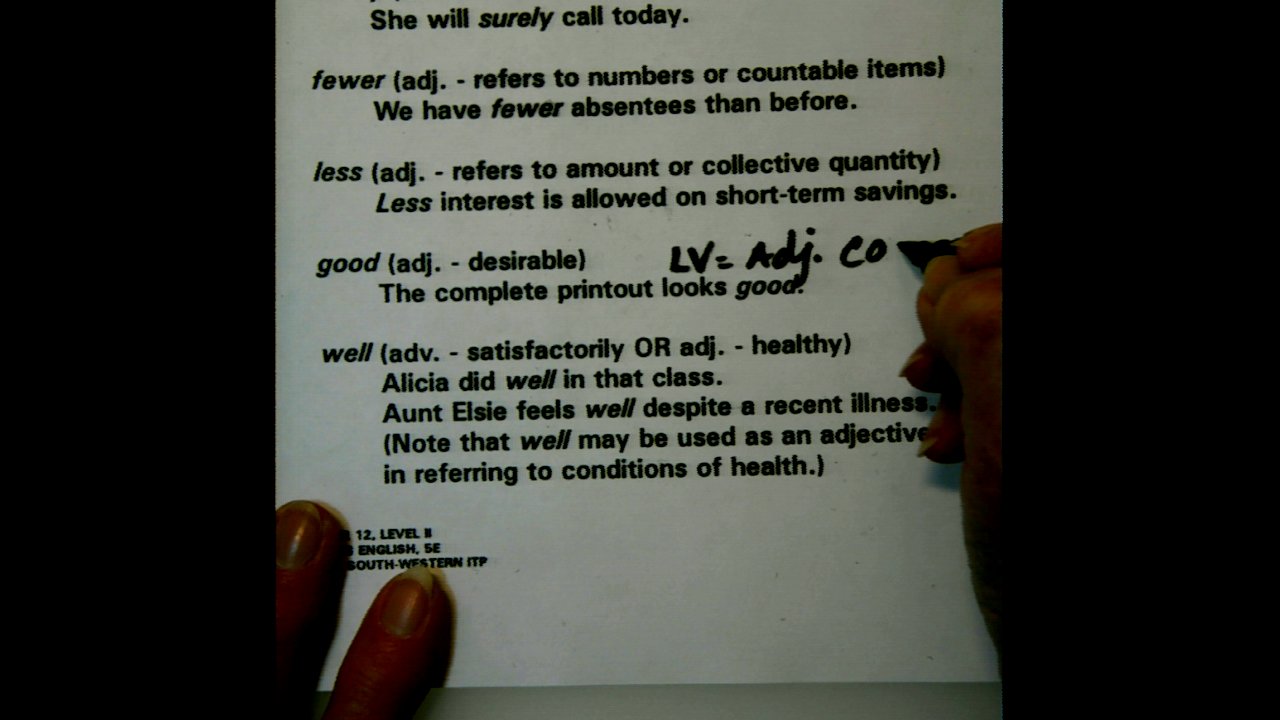 She will surely call today.
fewer (adj. - refers to numbers or countable items)
We have fewer absentees than before.
less (adj. - refers to amount or collective quantity)
Less interest is allowed on short-term savings.
good (adj. - desirable) LV= Adj. Co
The complete printout looks good.
well (adv. - satisfactorily OR adj. - healthy)
Alicia did well in that class.
Aunt Elsie feels well despite a recent illness.
(Note that well may be used as an adjective
in referring to conditions of health.)
12, LEVEL II
ENGLISH, 5E
SOUTH-WESTERN ITP